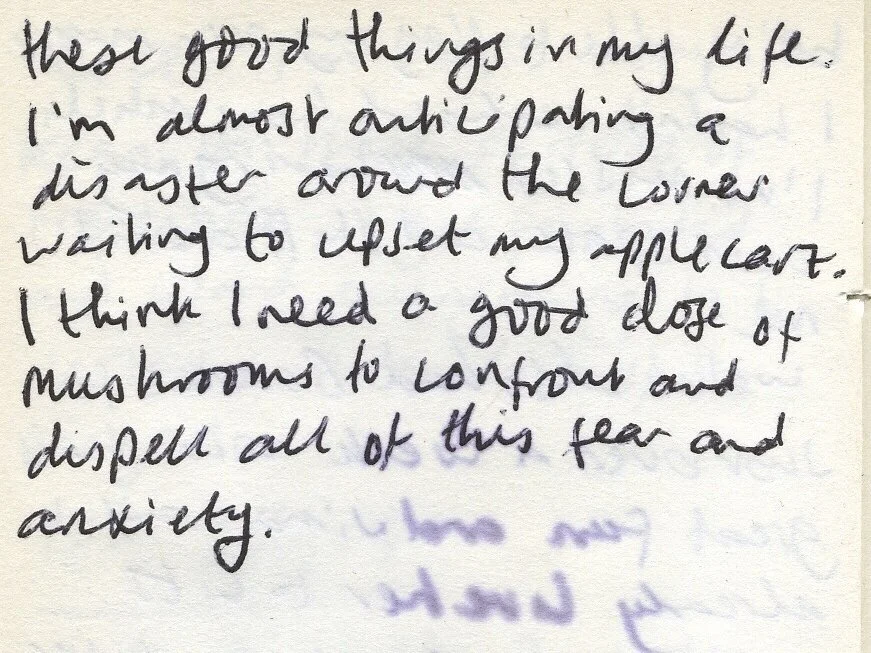 these good things in my life.
I'm almost anticipating a
disaster around the corner
waiting to upset my applecart.
I think I need a good dose of
mushrooms to confront and
dispell all of this fear and
anxiety.